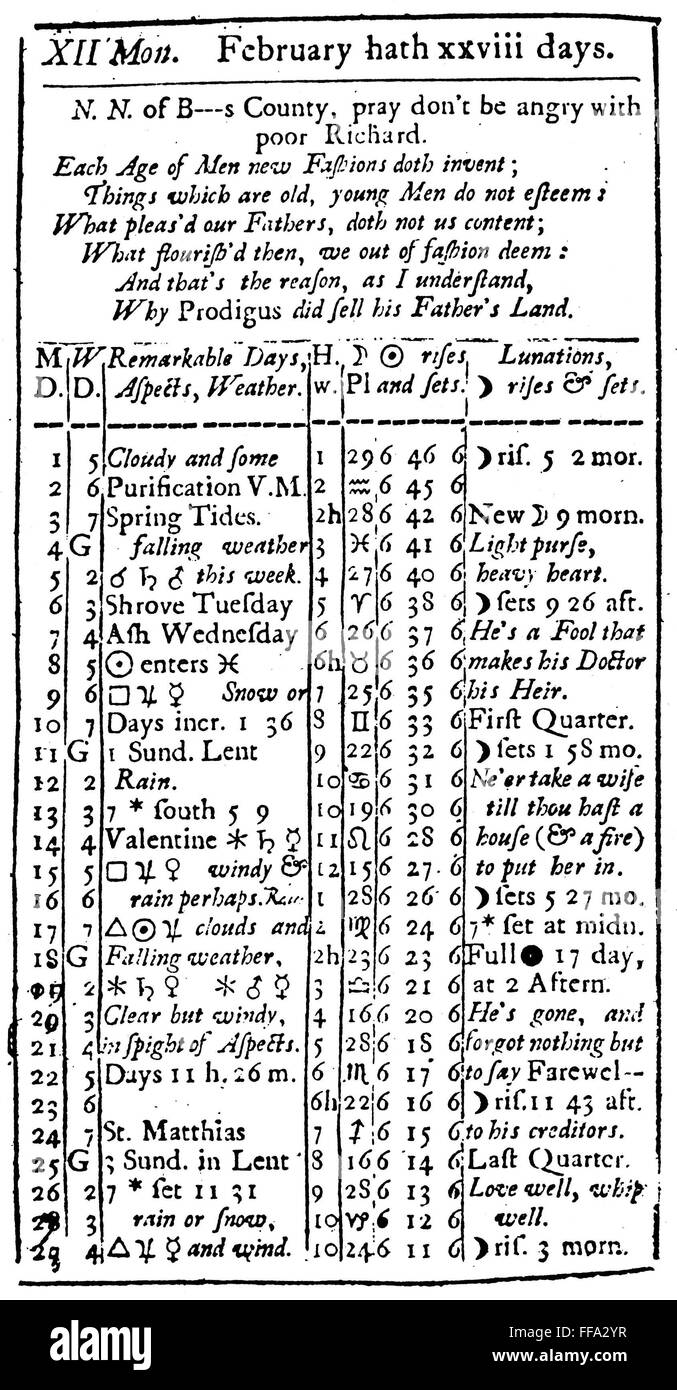 XII Mon. February hath xxviii days.
N. N. of B---s County, pray don't be angry with
poor Richard.
Each Age of Men new Faſhions doth invent;
Things which are old, young Men do not eſteem:
What pleas'd our Fathers, doth not us content;
What flouriſh'd then, we out of faſhion deem:
And that's the reaſon, as I underſtand,
Why Prodigus did ſell his Father's Land.
M W Remarkable Days, H. ☽ ☉ riſes Lunations,
D. D. Aſpects, Weather. w. Pl and ſets. ☽ riſes & ſets.
1 5 Cloudy and ſome 1 29 6 46 6 ☽ riſ. 5 2 mor.
2 6 Purification V.M. 2 ♒ 6 45 6
3 7 Spring Tides. 2h 28 6 42 6 New ☽ 9 morn.
4 G falling weather 3 ♓ 6 41 6 Light purſe,
5 2 ☌ ♄ ♂ this week. 4 27 6 40 6 heavy heart.
6 3 Shrove Tueſday 5 ♈ 6 38 6 ☽ ſets 9 26 aft.
7 4 Aſh Wedneſday 6 26 6 37 6 He's a Fool that
8 5 ☉ enters ♓ 6h ♉ 6 36 6 makes his Doctor
9 6 □ ♃ ☿ Snow or 7 25 6 35 6 his Heir.
10 7 Days incr. 1 36 8 ♊ 6 33 6 Firſt Quarter.
11 G 1 Sund. Lent 9 22 6 32 6 ☽ ſets 1 58 mo.
12 2 Rain. 10 ♋ 6 31 6 Ne'er take a wife
13 3 7 * ſouth 5 9 10 19 6 30 6 till thou haſt a
14 4 Valentine ⚹ ♄ ☿ 11 ♌ 6 28 6 houſe (& a fire)
15 5 □ ♃ ♀ windy & 12 15 6 27 6 to put her in.
16 6 rain perhaps. 1 28 6 26 6 ☽ ſets 5 27 mo.
17 7 △ ☉ ♃ clouds and 2 ♍ 6 24 6 7* ſet at midn.
18 G Falling weather, 2h 23 6 23 6 Full ● 17 day,
2 ⚹ ♄ ♀ ⚹ ♂ ☿ 3 ♎ 6 21 6 at 2 Aftern.
20 3 Clear but windy, 4 16 6 20 6 He's gone, and
21 4 in ſpight of Aſpects. 5 28 6 18 6 forgot nothing but
22 5 Days 11 h. 26 m. 6 ♏ 6 17 6 to ſay Farewel--
23 6 6h 22 6 16 6 ☽ riſ. 11 43 aft.
24 7 St. Matthias 7 ♐ 6 15 6 to his creditors.
25 G 3 Sund. in Lent 8 16 6 14 6 Laſt Quarter.
26 2 7 * ſet 11 31 9 28 6 13 6 Love well, whip
3 rain or ſnow, 10 ♑ 6 12 6 well.
4 △ ♃ ☿ and wind. 10 24 6 11 6 ☽ riſ. 3 morn.
alamy
Image ID: FFA2YR
www.alamy.com